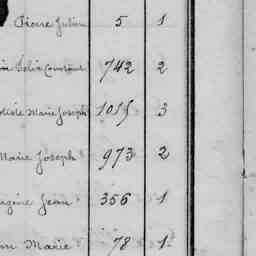 Pierre Julien 5 1
Félix Constant 742 2
Marie Joseph 1015 3
Marie Joseph 973 2
Eugène Jean 356 1
Marie 78 1